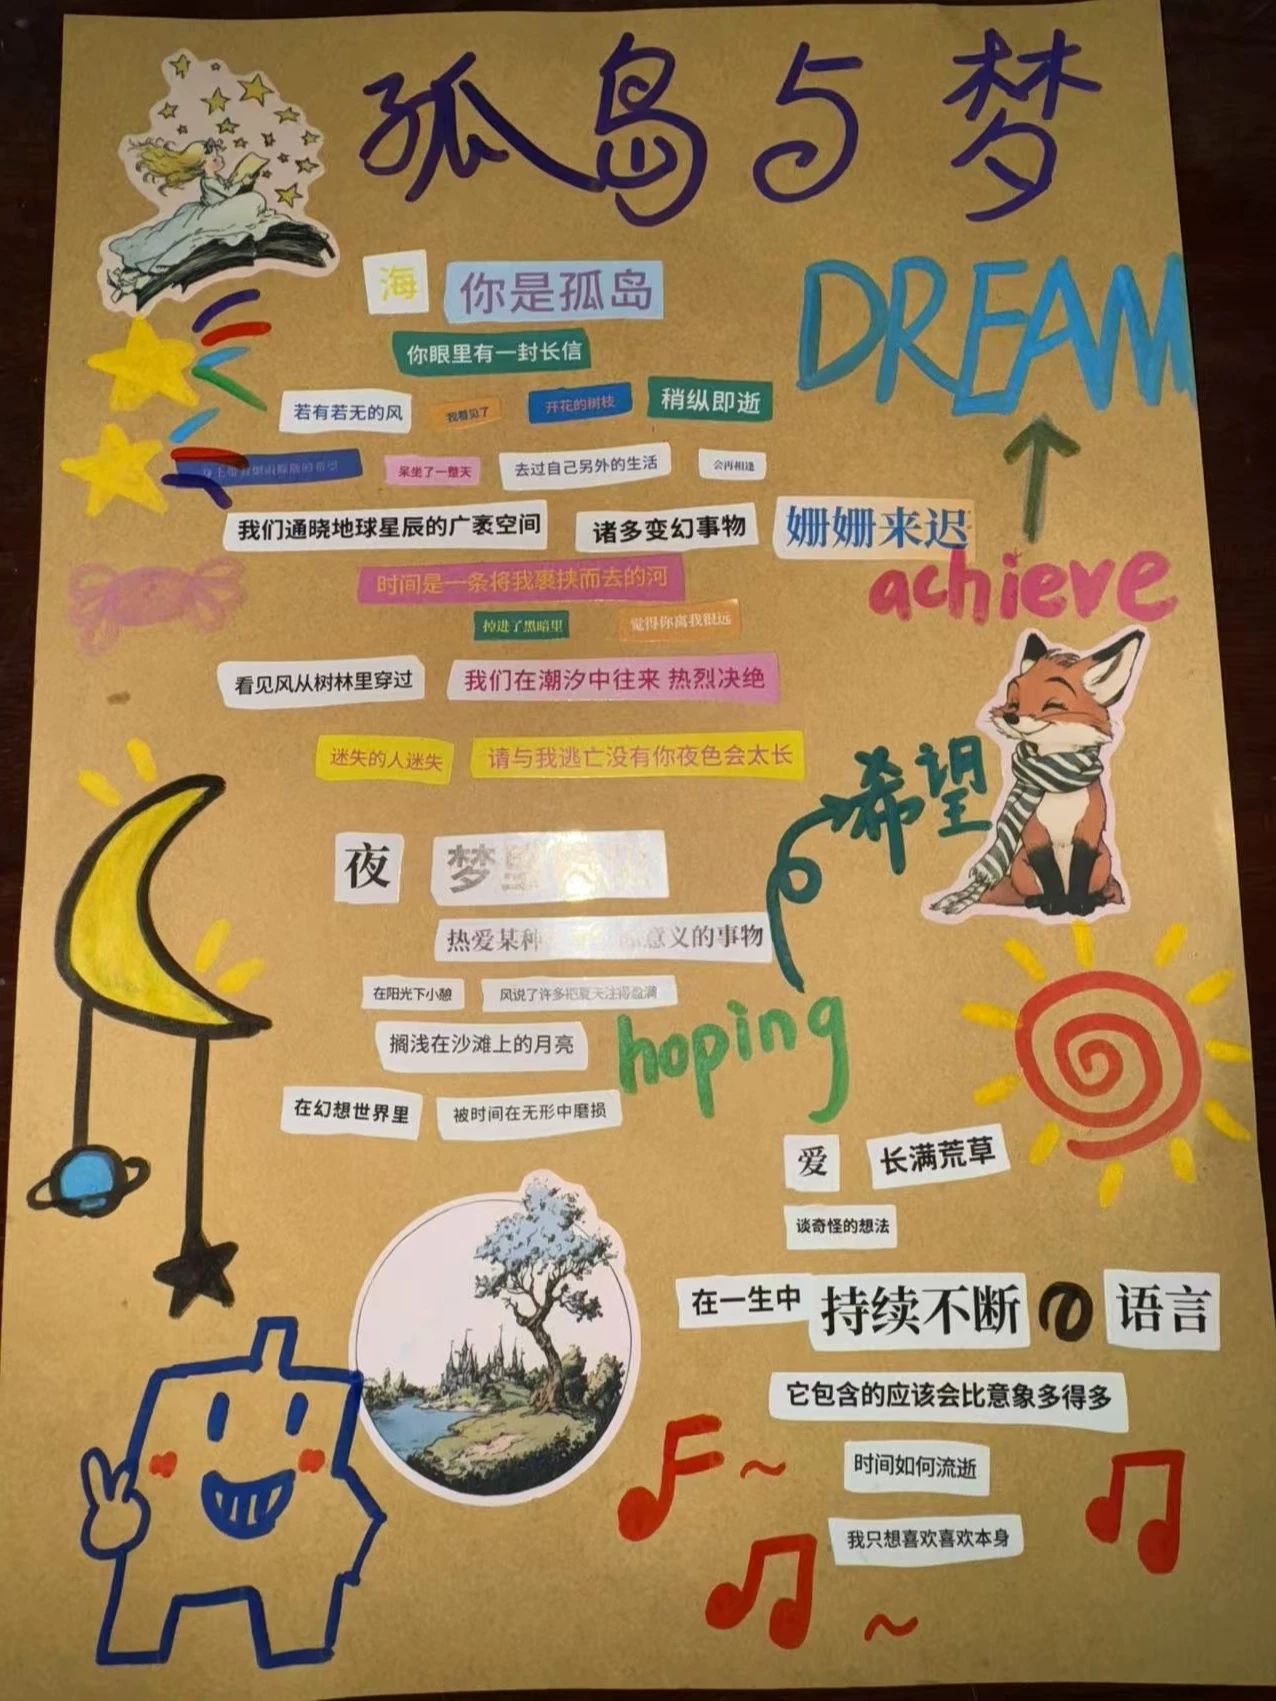 孤岛与梦
海 你是孤岛
DREAM
你眼里有一封长信
若有若无的风 我看见了 开花的树枝 稍纵即逝
呆坐了一整天 去过自己另外的生活 会再相逢
我们通晓地球星辰的广袤空间 诸多变幻事物 姗姗来迟
achieve
时间是一条将我裹挟而去的河
掉进了黑暗里 觉得你离我很远
看见风从树林里穿过 我们在潮汐中往来 热烈决绝
迷失的人迷失 请与我逃亡没有你夜色会太长
希望
夜 梦
热爱某种 意义的事物
在阳光下小憩 风说了许多把夏天注得盈满
搁浅在沙滩上的月亮
hoping
在幻想世界里 被时间在无形中磨损
爱 长满荒草
谈奇怪的想法
在一生中 持续不断 の 语言
它包含的应该会比意象多得多
时间如何流逝
我只想喜欢喜欢本身